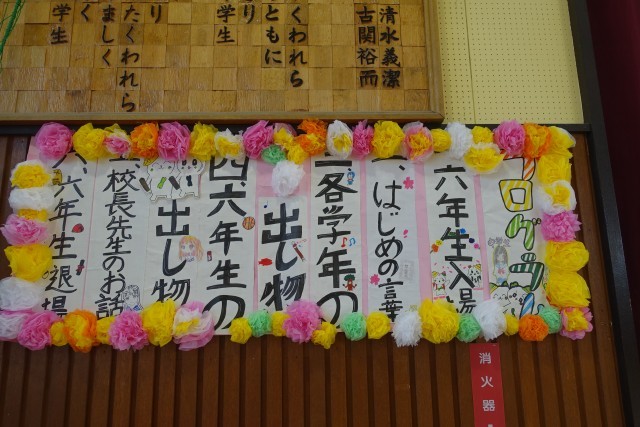 清水義潔
古関裕而
くわれら
ともに
り
学生
り
たくわれら
ましく
り
学生
プログラム
六年生入場
はじめの言葉
各学年の
出し物
四、六年生の
出し物
校長先生のお話
六、六年生退場
消火器